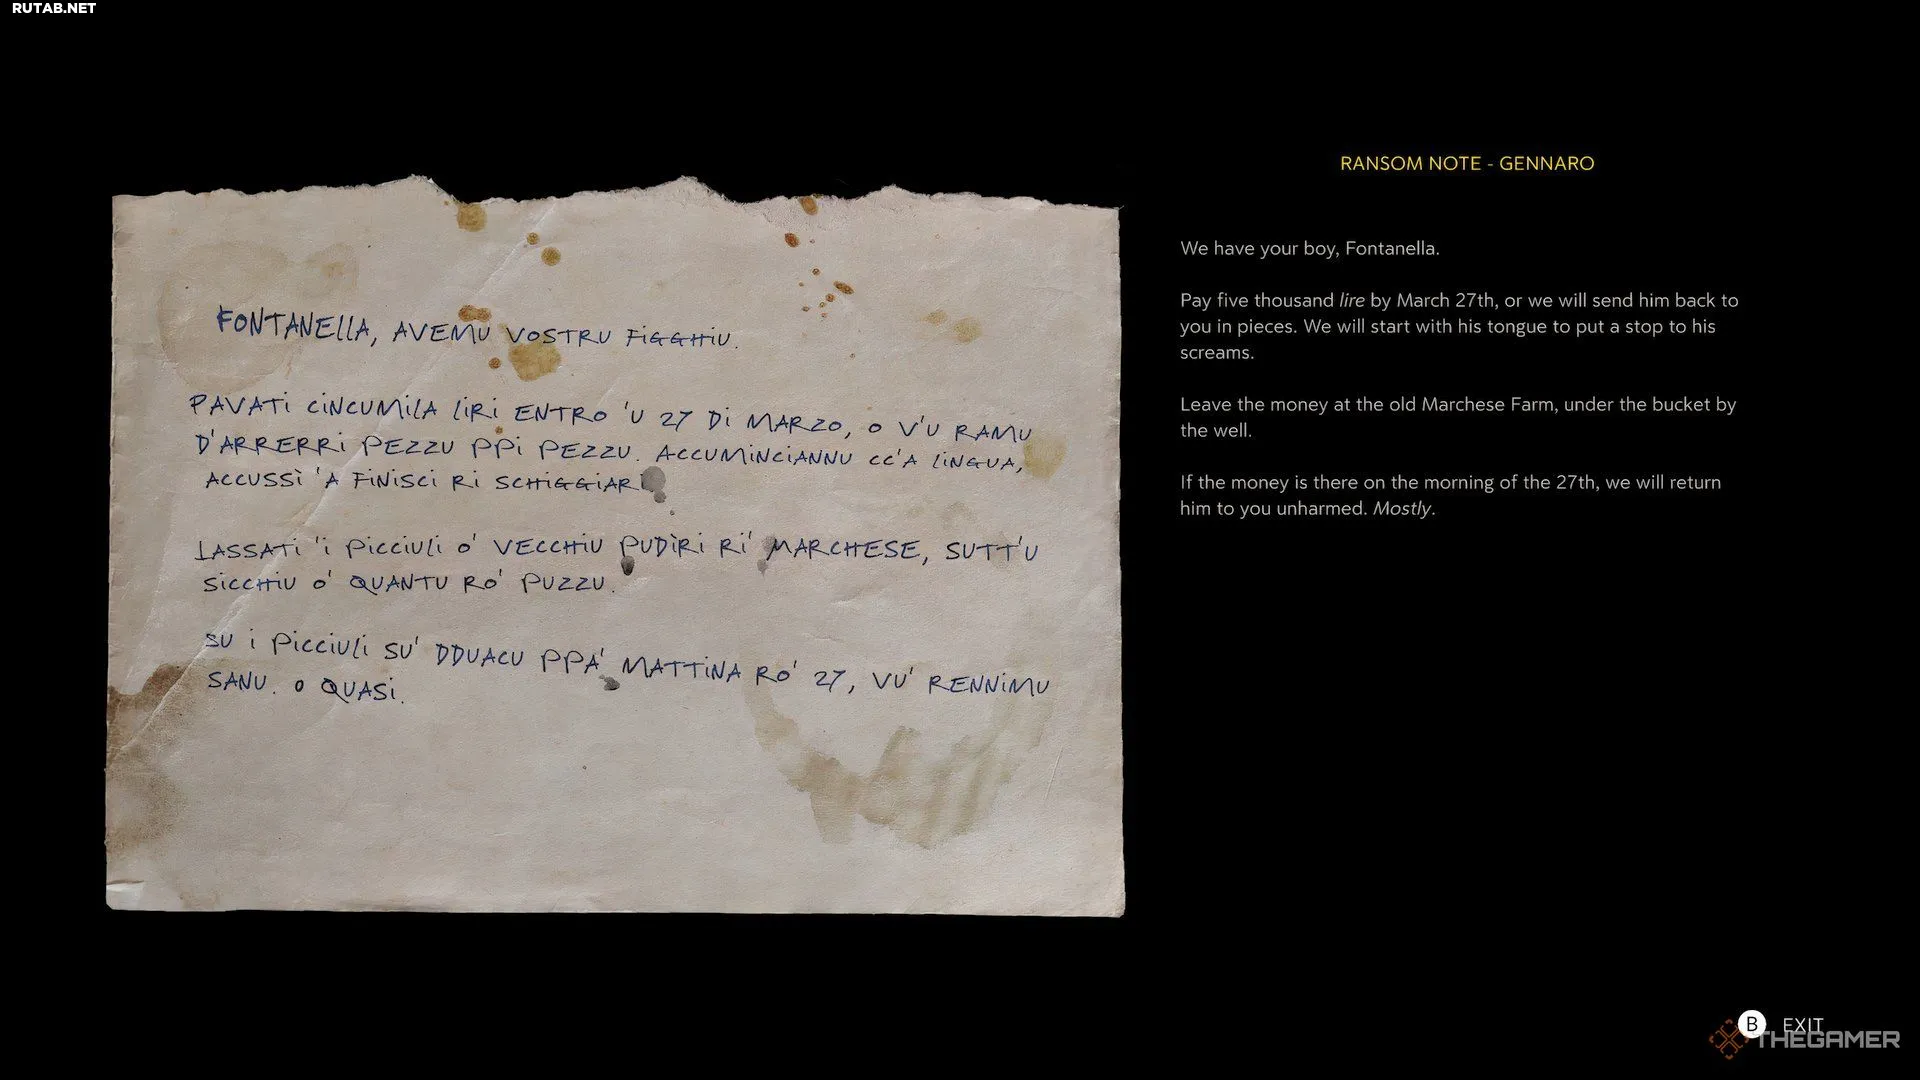 RUTAB.NET
FONTANELLA, AVEMU VOSTRU FIGGHIU.
PAVATI CINCUMILA LIRI ENTRO 'U 27 DI MARZO, O V'U RAMU
D'ARRERRI PEZZU PPI PEZZU. ACCUMINCIANNU CC'A LINGUA,
ACCUSSÌ 'A FINISCI RI SCHIGGIARI
LASSATI 'I PICCIULI O' VECCHIU PUDIRI RI' MARCHESE, SUTT'U
SICCHIU O' QUANTU RO' PUZZU.
SU I PICCIULI SU' DDUACU PPA' MATTINA RO' 27, VU' RENNIMU
SANU. O QUASI.
RANSOM NOTE - GENNARO
We have your boy, Fontanella.
Pay five thousand lire by March 27th, or we will send him back to
you in pieces. We will start with his tongue to put a stop to his
screams.
Leave the money at the old Marchese Farm, under the bucket by
the well.
If the money is there on the morning of the 27th, we will return
him to you unharmed. Mostly.
B EXIT
THEGAMER